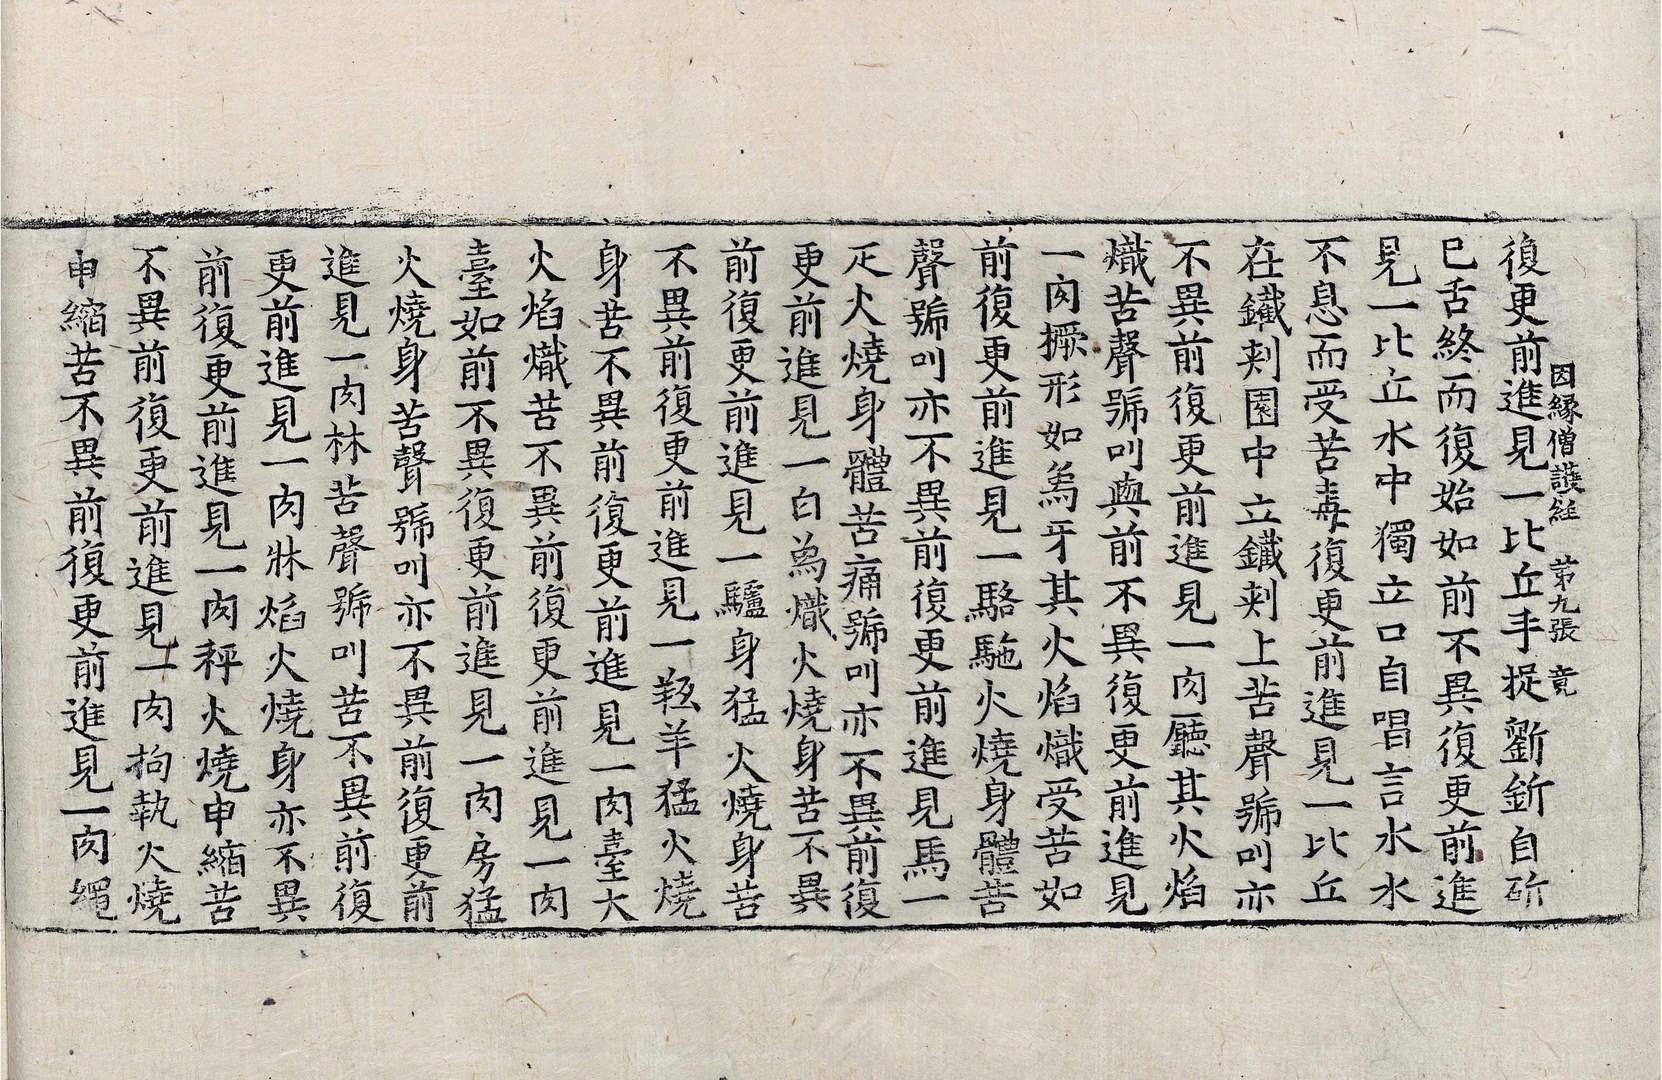 因縁僧護經 第九張 竟
復更前進見一比丘手捉劉釿自斫
已舌終而復始如前不異復更前進
見一比丘水中獨立口自唱言水水
不息而受苦毒復更前進見一比丘
在鐵刾園中立鐵刾上苦聲號叫亦
不異前復更前進見一肉廳其火焰
熾苦聲號叫與前不異復更前進見
一肉橛形如爲牙其火焰熾受苦如
前復更前進見一駱駞火燒身體苦
聲號叫亦不異前復更前進見馬一
疋火燒身體苦痛號叫亦不異前復
更前進見一白爲熾火燒身苦不異
前復更前進見一驢身猛火燒身苦
不異前復更前進見一羝羊猛火燒
身苦不異前復更前進見一肉臺大
火焰熾苦不異前復更前進見一肉
臺如前不異復更前進見一肉房猛
火燒身苦聲號叫亦不異前復更前
進見一肉林苦聲號叫苦不異前復
更前進見一肉牀焰火燒身亦不異
前復更前進見一肉秤火燒申縮苦
不異前復更前進見一肉拘執火燒
申縮苦不異前復更前進見一肉繩